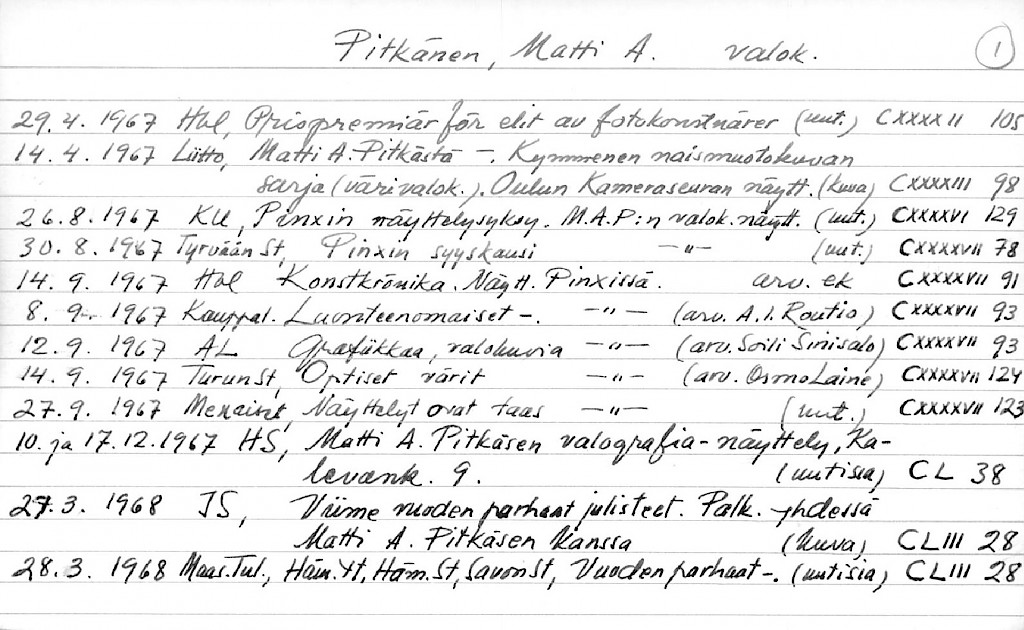 Pitkänen, Matti A. valok. 1
29.4. 1967 Hbl, Prispremiär för elit av fotokonstnärer (uut.) CXXXXII 105
14.4. 1967 Liitto, Matti A. Pitkästä -. Kymmenen naismuotokuvan
sarja (värivalok.). Oulun Kameraseuran näytt. (kuva) CXXXXIII 98
26.8. 1967 KU, Pinxin näyttelysyksy. M.A.P:n valok.näytt. (uut.) CXXXXVI 129
30.8. 1967 Tyrvään St, Pinxin syyskausi -"- (uut.) CXXXXVII 78
14.9. 1967 Hbl Konstkrönika. Näytt. Pinxissä. arv. ek CXXXXVII 91
8. 9. 1967 Kauppal. Luonteenomaiset -. -"- (arv. A.I. Routio) CXXXXVII 93
12.9. 1967 AL Grafiikkaa, valokuvia -"- (arv. Soili Sinisalo) CXXXXVII 93
14.9. 1967 Turun St, Optiset värit -"- (arv. Osmo Laine) CXXXXVII 124
27.9. 1967 Menaiset, Näyttelyt ovat taas -"- (uut.) CXXXXVII 123
10. ja 17.12.1967 HS, Matti A. Pitkäsen valografia-näyttely, Ka-
levank. 9. (uutisia) CL 38
27.3. 1968 JS, Viime vuoden parhaat julisteet. Palk. yhdessä
Matti A. Pitkäsen kanssa (kuva) CLIII 28
28.3. 1968 Maas.Tul., Häm.Yt, Häm.St, Savon St, Vuoden parhaat-. (uutisia) CLIII 28